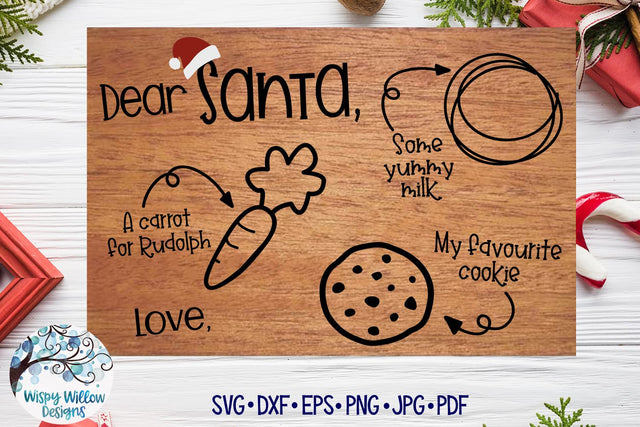 Dear Santa,
Some
yummy
milk
A carrot
for Rudolph
My favourite
cookie
Love,
Wispy Willow
Designs
SVG•DXF•EPS•PNG•JPG•PDF